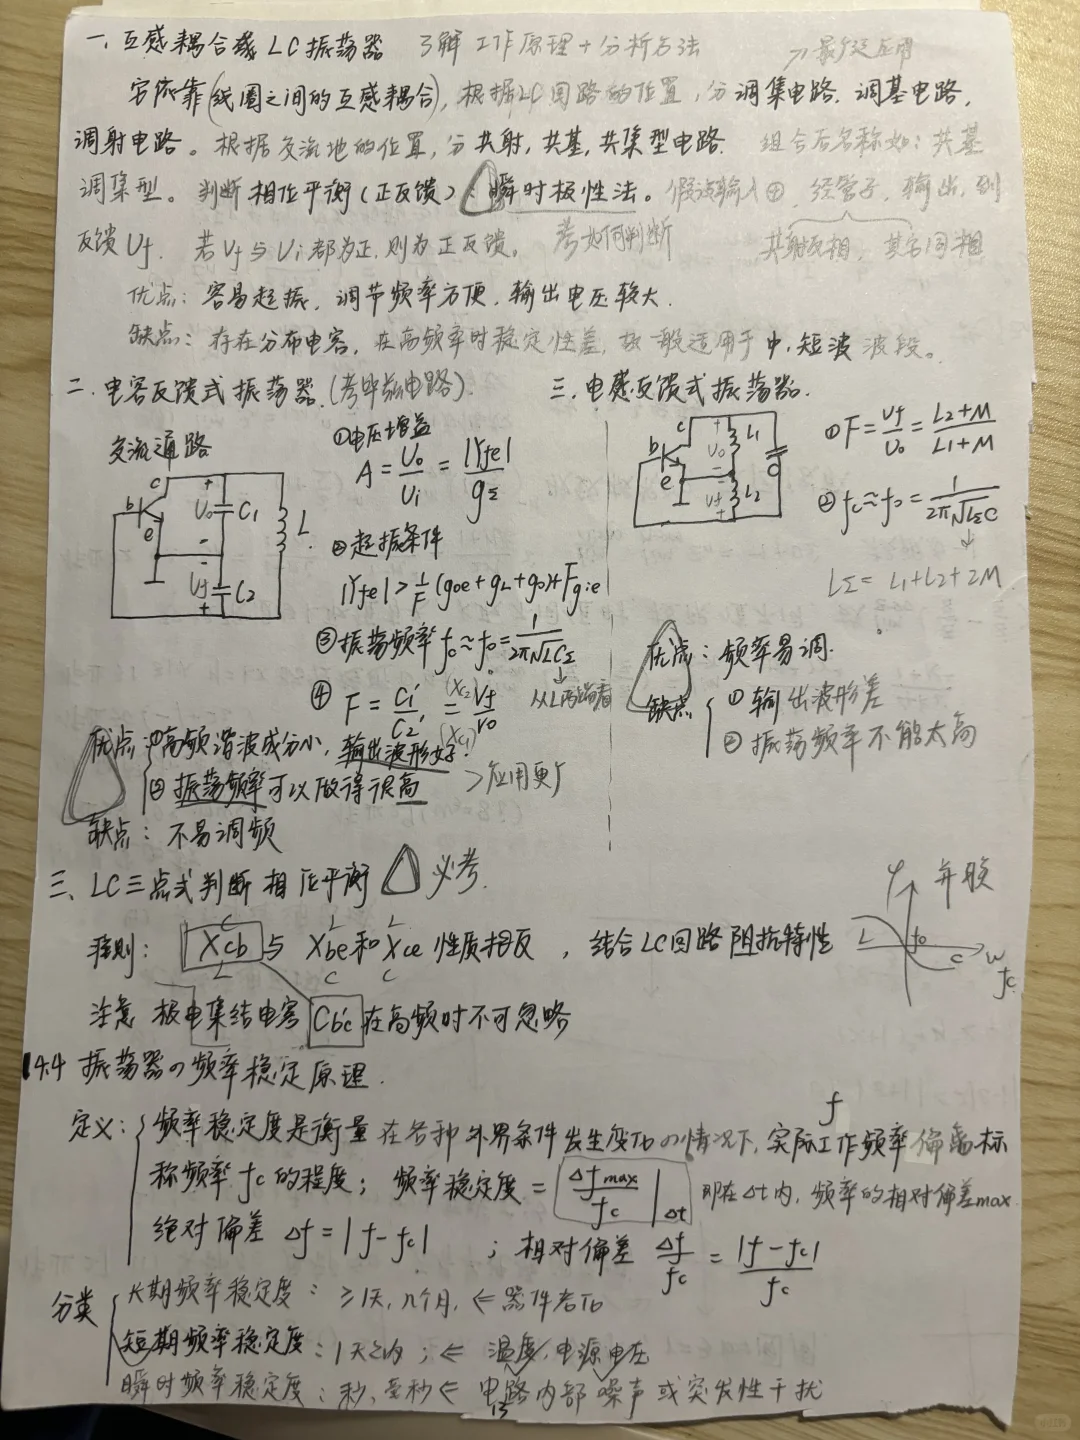 一、互感耦合或LC振荡器 了解 工作原理+分析方法 →最广泛应用
它依靠(线圈之间的互感耦合),根据LC回路的位置,分调集电路.调基电路,
调射电路。根据交流地的位置,分共射,共基,共集型电路. 组合后名称如:共基
调集型。判断相位平衡(正反馈):瞬时极性法。假设输入⊕,经管子,输出,到
反馈Uf. 若Uf与Ui都为正,则为正反馈。 考如何判断 共射反相,其它同相
优点:容易起振,调节频率方便,输出电压较大.
缺点:存在分布电容,在高频率时稳定性差,故一般适用于中.短波波段。
二.电容反馈式振荡器.(考串振电路).
交流通路
c + b Uo C1 e - L. Uf C2 +
①电压增益
A=Uo/Ui=|Yfe|/gΣ
②起振条件
|Yfe|>1/F(goe+gL+go)+Fgie
③振荡频率fc≈fo=1/2π√LCΣ
↓从L两端看
④ F=C1'/C2'=(Xc2)Vf/(Xc1)Vo
优点 ①高频谐波成分小,输出波形好!
②振荡频率可以做得很高 >应用更广
缺点:不易调频
三.电感反馈式振荡器.
c + L1 b Uo C e - Uf L2 +
①F=Uf/Uo=L2+M/L1+M
②fc≈fo=1/2π√LΣC
↓
LΣ=L1+L2+2M
优点:频率易调.
缺点 ①输出波形差
②振荡频率不能太高
三、LC三点式判断相位平衡 △ 必考.
C L L
准则:Xcb与Xbe和Xce性质相反,结合LC回路阻抗特性
L C C
φ 并联 L fo C ω fc
注意 极电集结电容Cb'c在高频时不可忽略
4.4 振荡器の频率稳定原理.
定义:频率稳定度是衡量在各种外界条件发生变化の情况下,实际工作频率f偏离标
称频率fc的程度;频率稳定度=Δfmax/fc|Δt 即在Δt内,频率的相对偏差max.
绝对偏差 Δf=|f-fc| ;相对偏差 Δf/fc=|f-fc|/fc
分类 长期频率稳定度:≥1天,几个月,⇐器件老化
短期频率稳定度:1天之内;⇐ 温度,电源电压
瞬时频率稳定度:秒、毫秒⇐ 电路内部噪声或突发性干扰
13
小红书